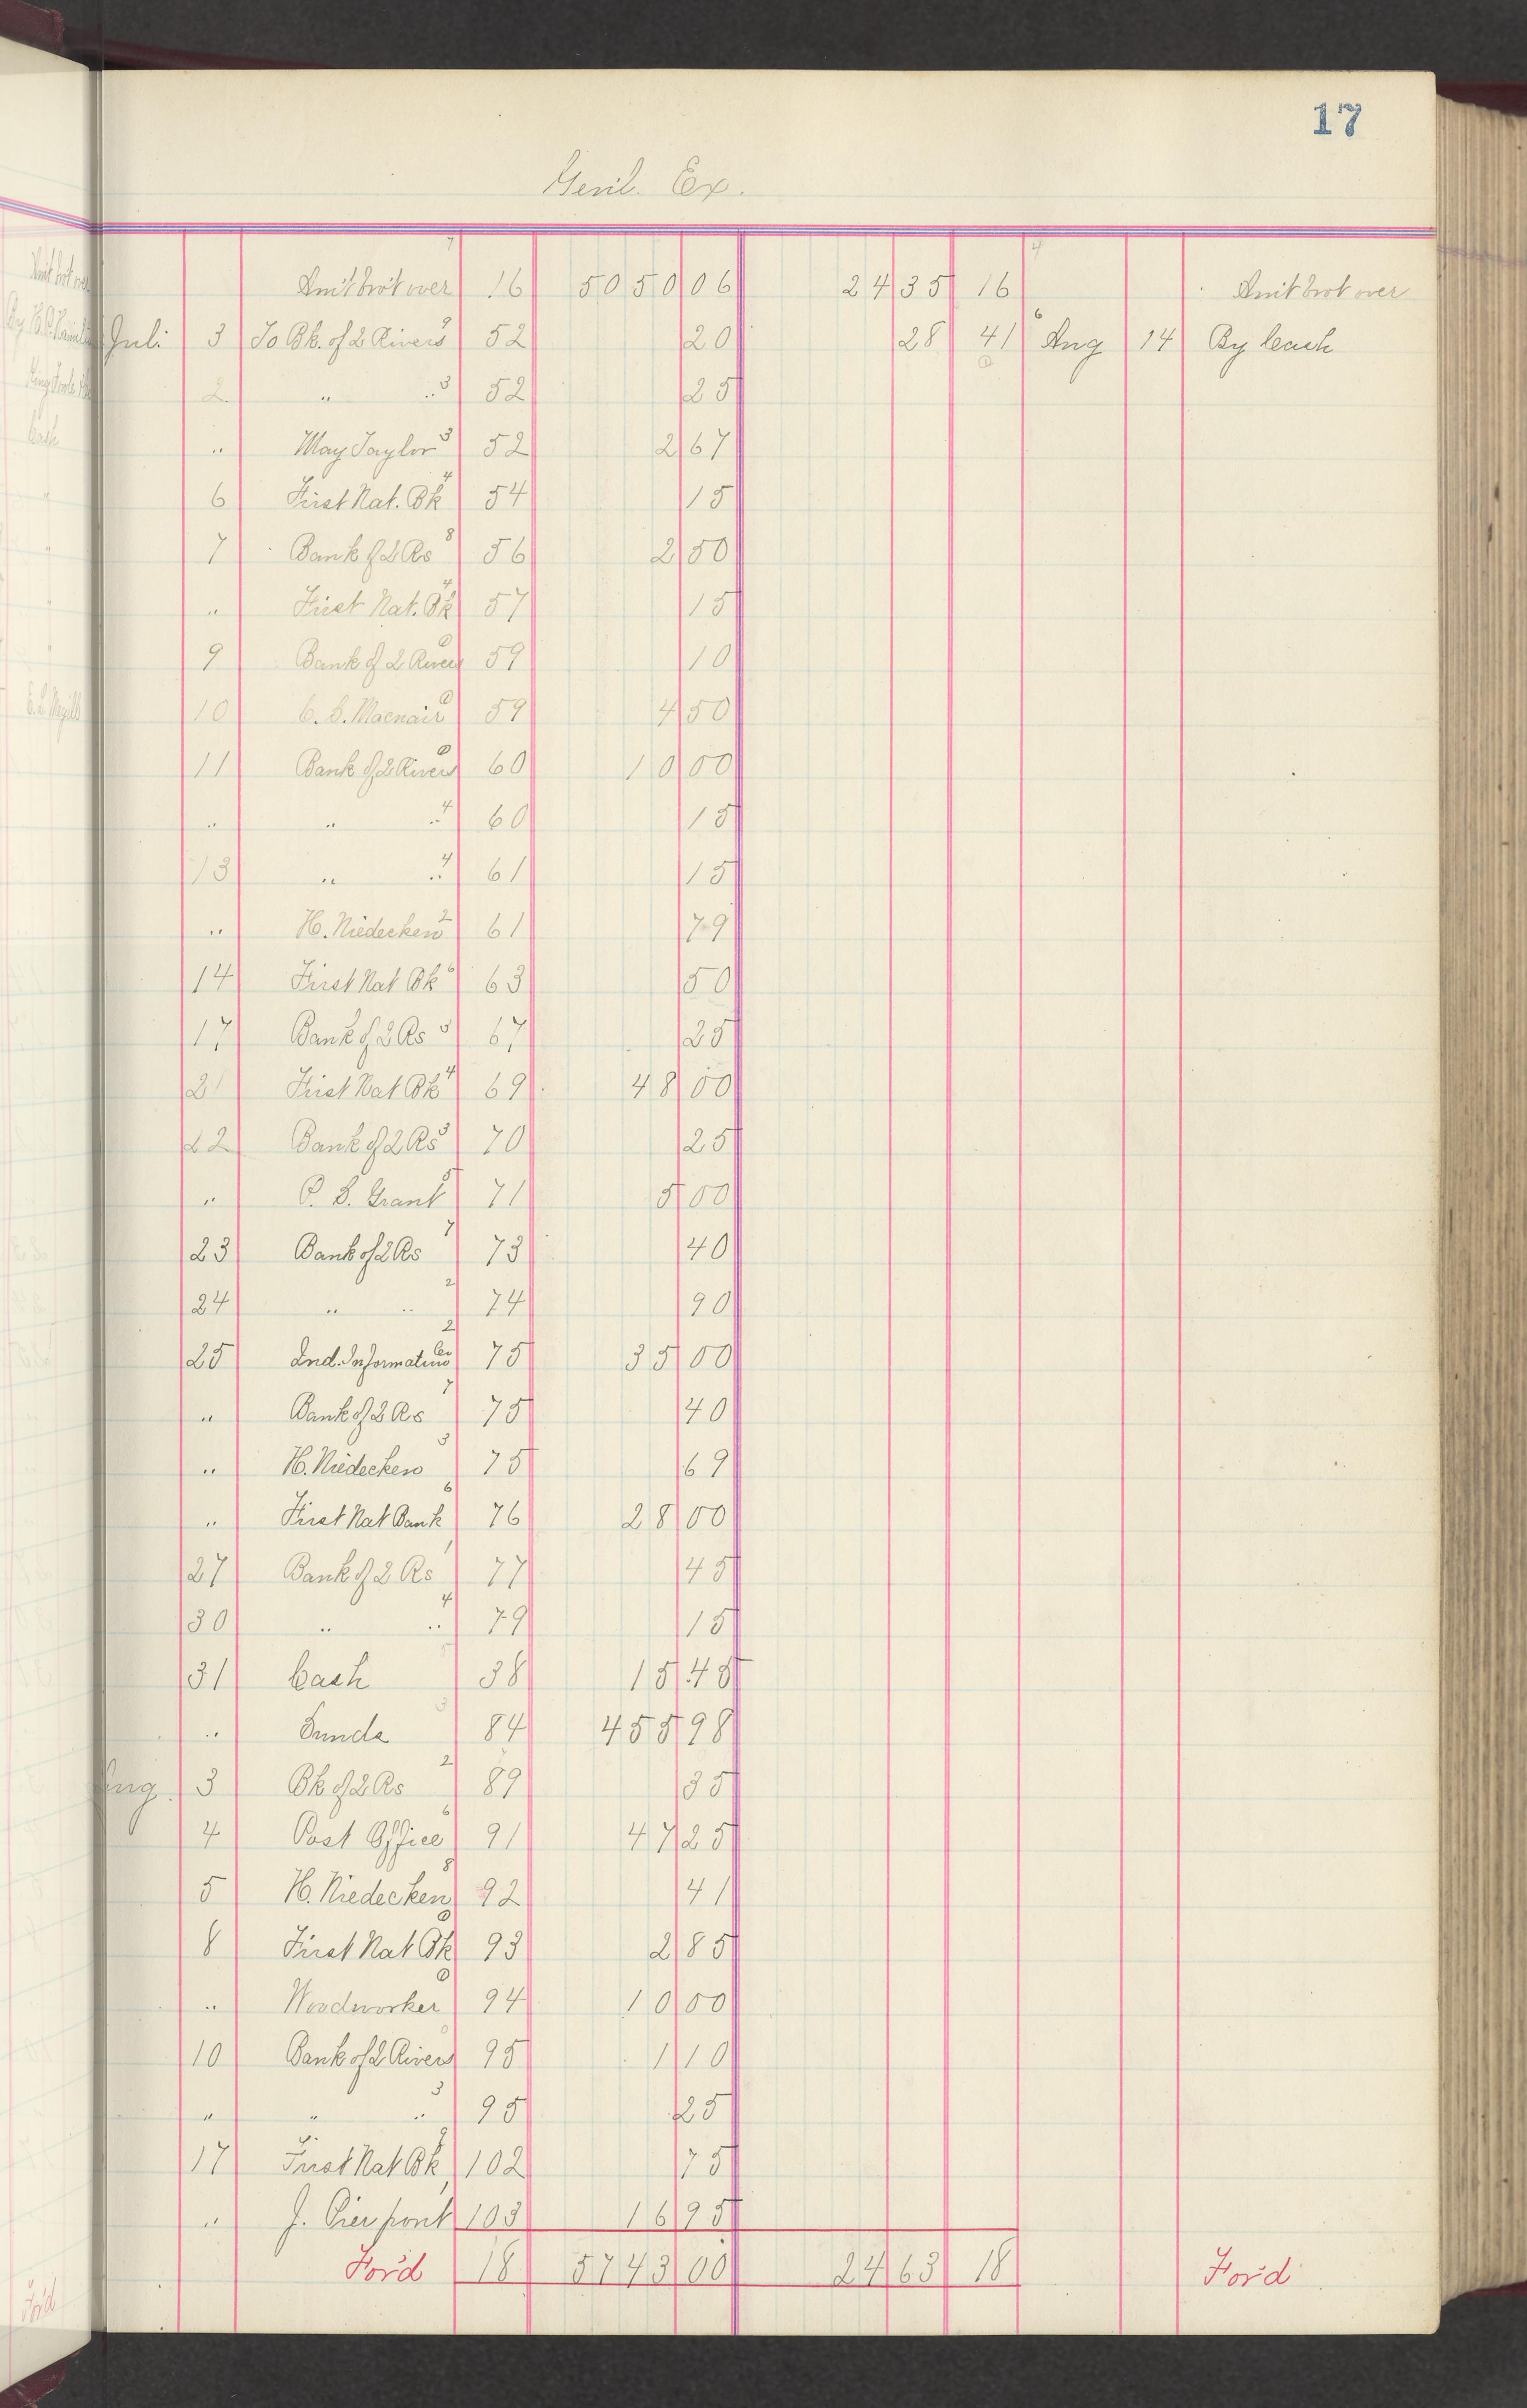 17
Genl. Ex.
Amt brot over 16 5050 06 24 35 16 Amt brot over
Juli 3 To Bk. of 2 Rivers 3 52 20 28 41 Aug 14 By Cash
2 " " 3 52 25
" May Taylor 3 52 2 67
6 First Nat. Bk 4 54 15
7 Bank of 2 Rs 8 56 2 50
" First Nat. Bk 4 57 15
9 Bank of 2 Rivers 0 59 10
10 C. S. Macnair 0 59 4 50
11 Bank of 2 Rivers 0 60 10 00
" " " 4 60 15
13 " " 4 61 15
" H. Niedecken 2 61 79
14 First Nat Bk 6 63 50
17 Bank of 2 Rs 5 67 25
21 First Nat Bk 4 69 48 00
22 Bank of 2 Rs 5 70 25
" C. S. Grant 5 71 5 00
23 Bank of 2 Rs 7 73 40
24 " " 2 74 90
25 Ind. Information Co 2 75 35 00
" Bank of 2 Rs 7 75 40
" H. Niedecken 3 75 69
" First Nat Bank 6 76 28 00
27 Bank of 2 Rs 1 77 45
30 " " 4 79 15
31 Cash 38 15 45
" Sunds 84 455 98
Aug. 3 Bk of 2 Rs 2 89 35
4 Post Office 6 91 47 25
5 H. Niedecken 8 92 41
8 First Nat Bk 0 93 2 85
" Woodworker 0 94 10 00
10 Bank of 2 Rivers 95 1 10
" " " 3 95 25
17 First Nat Bk 102 75
" J. Pierpont 103 16 95
Ford 18 5743 00 24 63 18 Ford